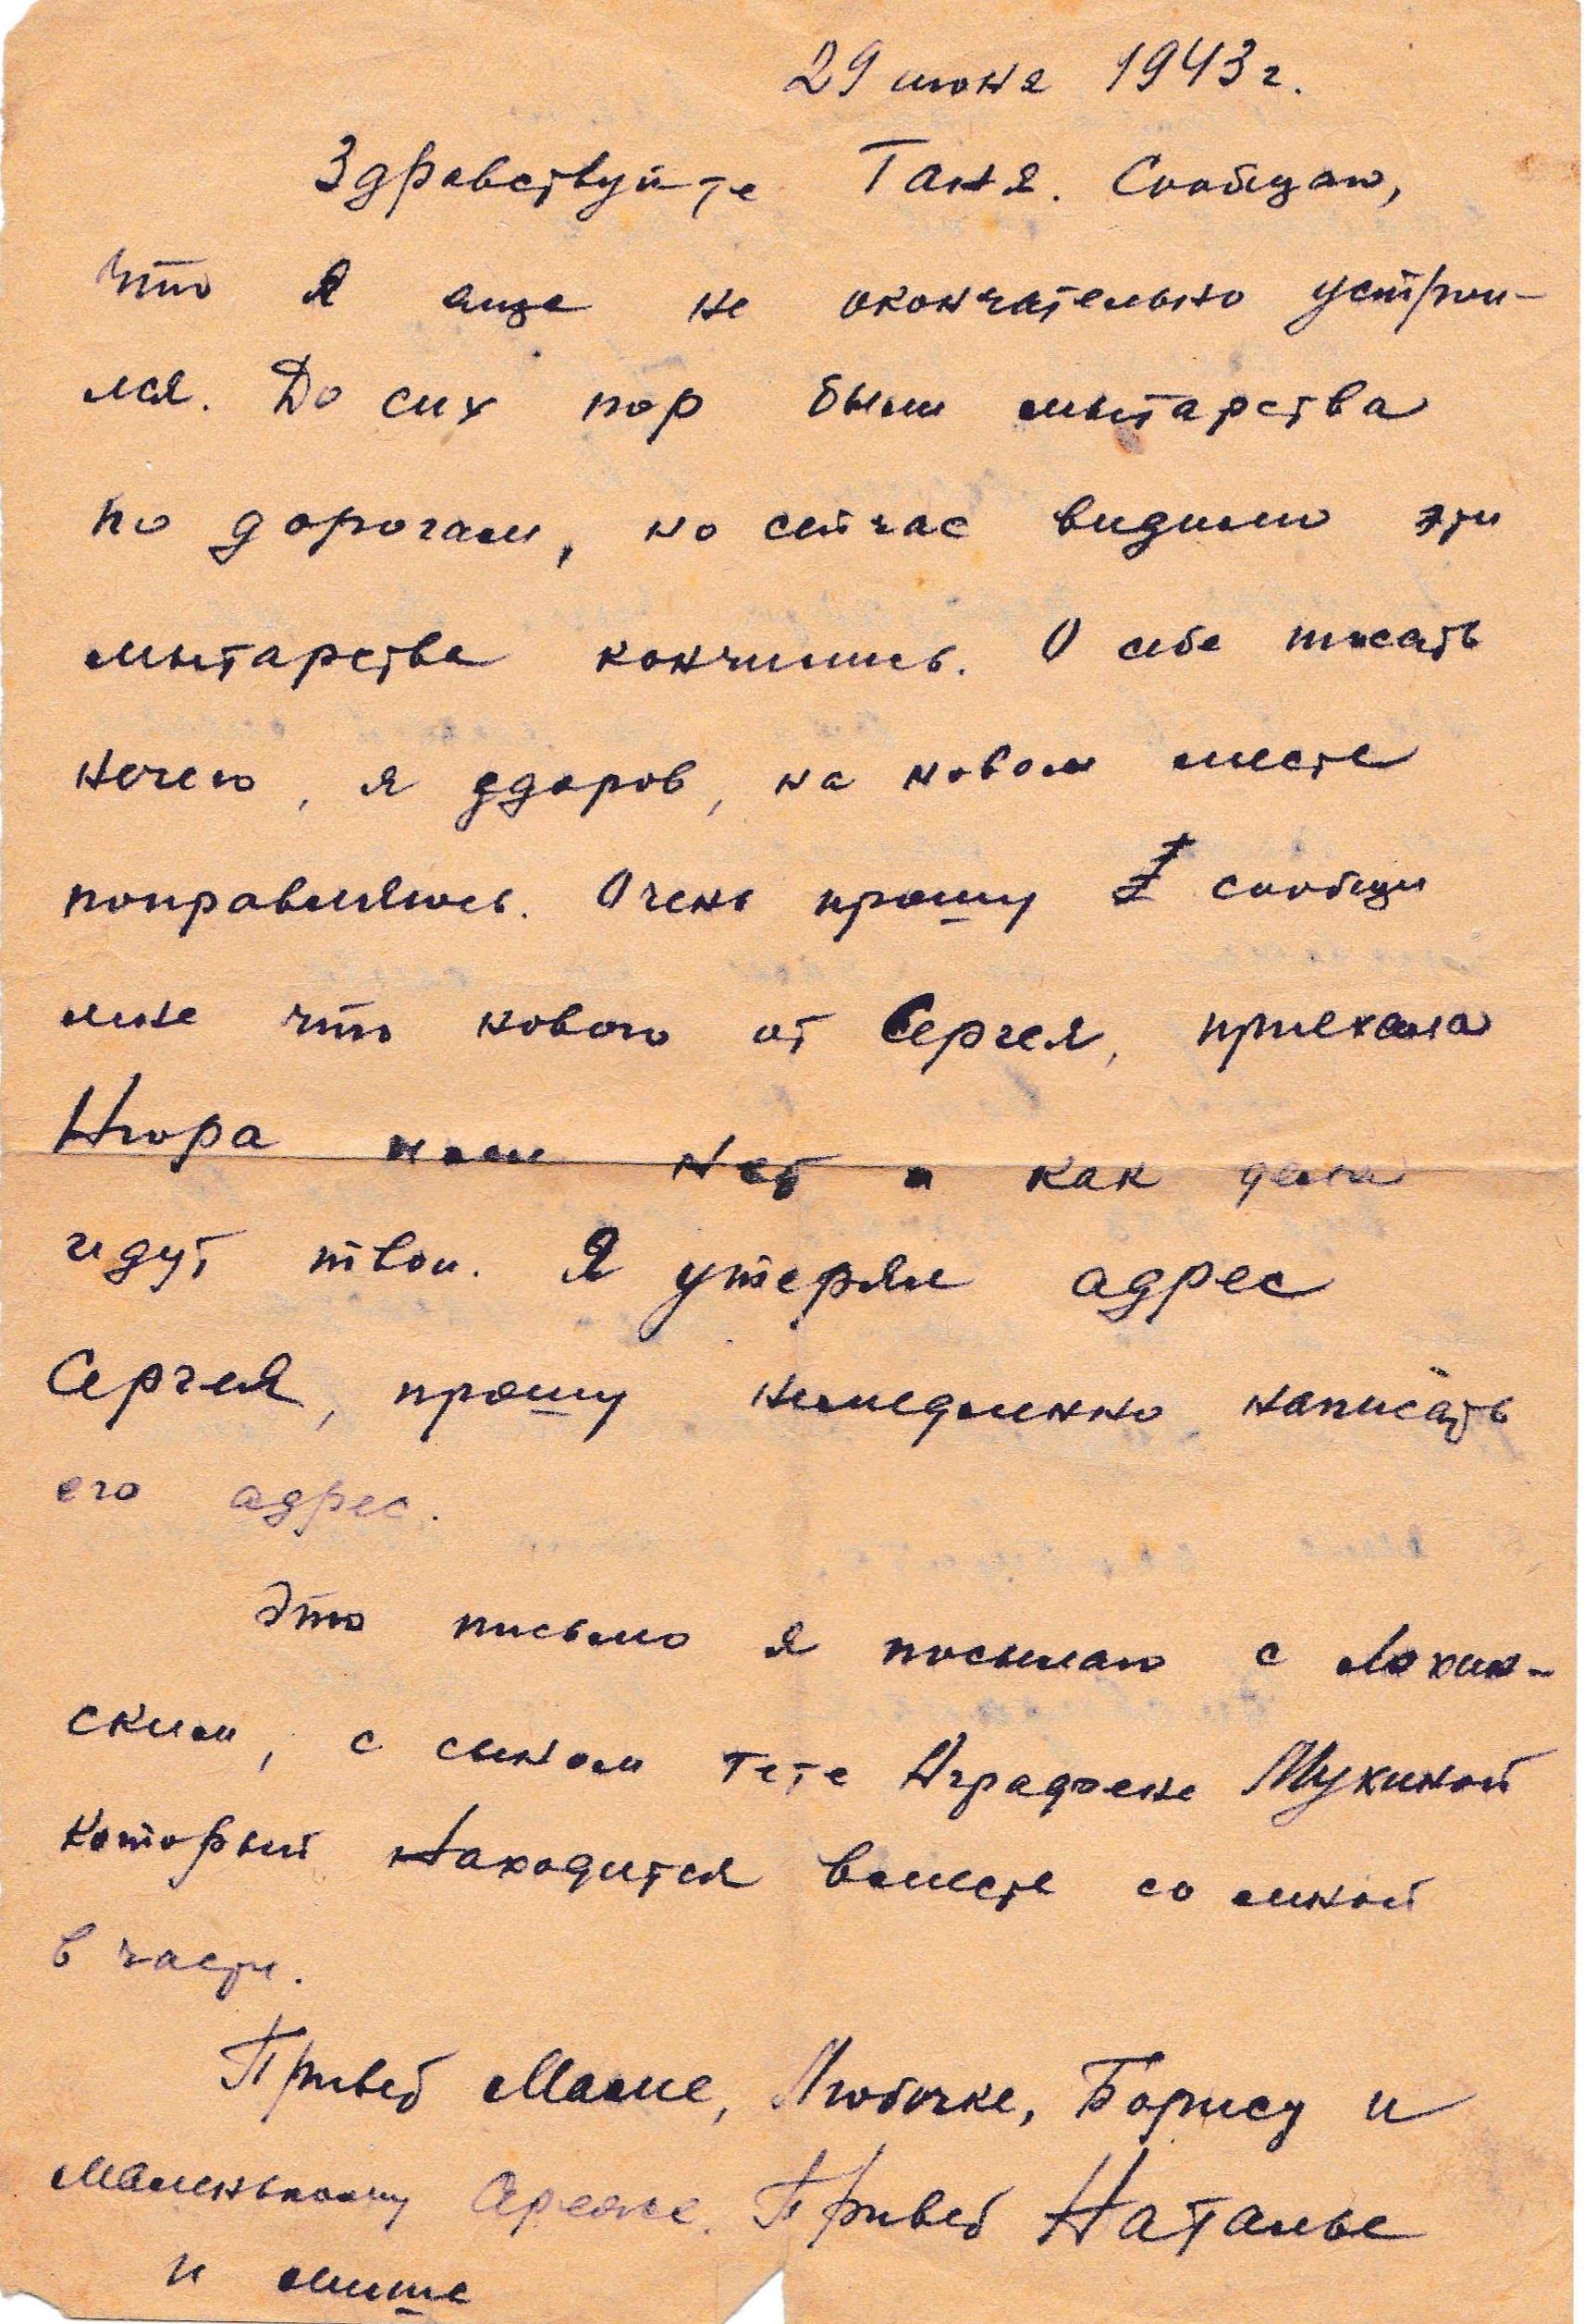 29 июня 1943 г.
Здравствуйте Таня. Сообщаю,
что я еще не окончательно устрои-
лся. До сих пор были мытарства
по дорогам, но сейчас видимо эти
мытарства кончились. О себе писать
нечего, я здоров, на новом месте
поправляюсь. Очень прошу сообщи
мне что нового от Сергея, приехала
Нюра или нет и как дела
идут твои. Я утерял адрес
Сергея, прошу немедленно написать
его адрес.
Это письмо я посылаю с
ским, с сыном тете Аграфене Мухиной
который находится вместе со мной
в части.
Привет Маме, Любочке, Борису и
маленькому Сереже. Привет Наталье
и мише